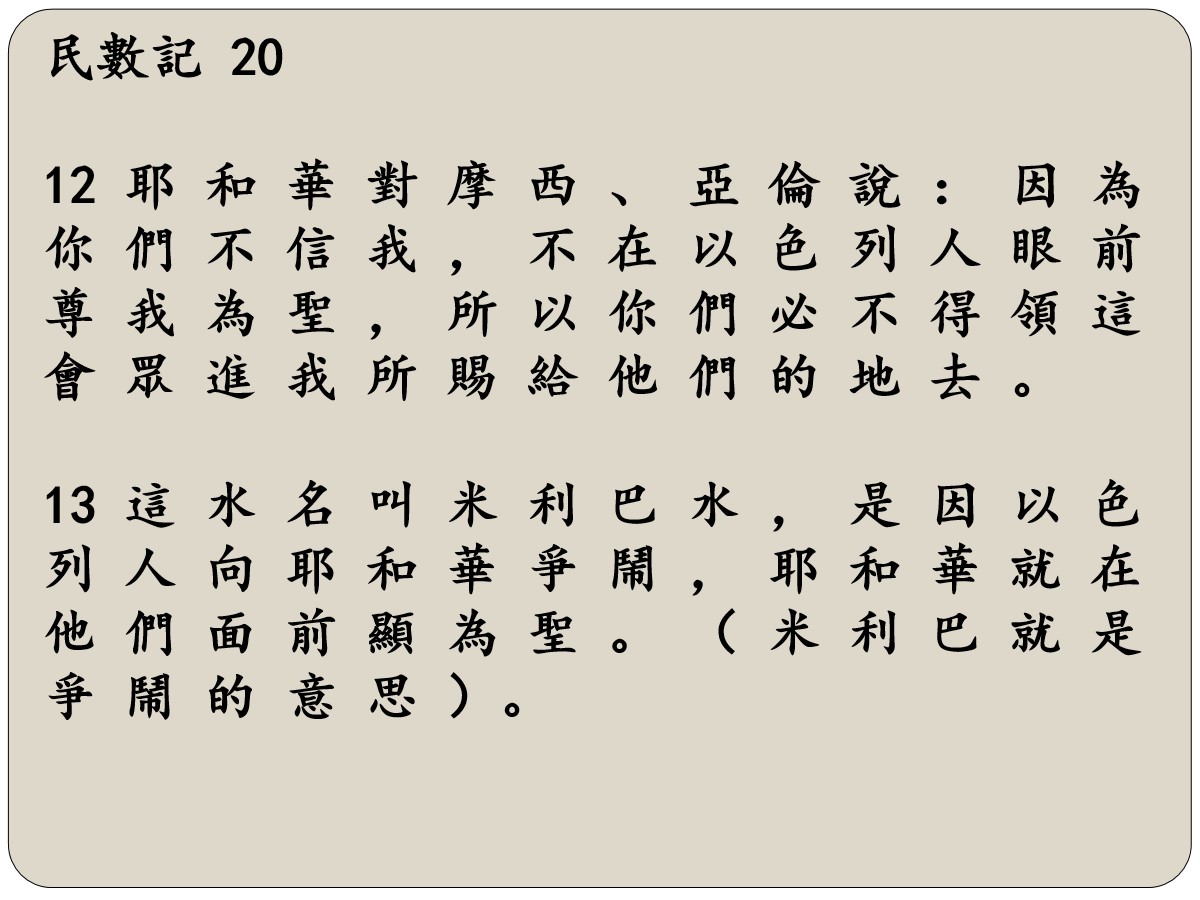 民數記 20
12 耶 和 華 對 摩 西 、 亞 倫 說 : 因 為
你 們 不 信 我 , 不 在 以 色 列 人 眼 前
尊 我 為 聖 , 所 以 你 們 必 不 得 領 這
會 眾 進 我 所 賜 給 他 們 的 地 去 。
13 這 水 名 叫 米 利 巴 水 , 是 因 以 色
列 人 向 耶 和 華 爭 鬧 , 耶 和 華 就 在
他 們 面 前 顯 為 聖 。 ( 米 利 巴 就 是
爭 鬧 的 意 思 ) 。